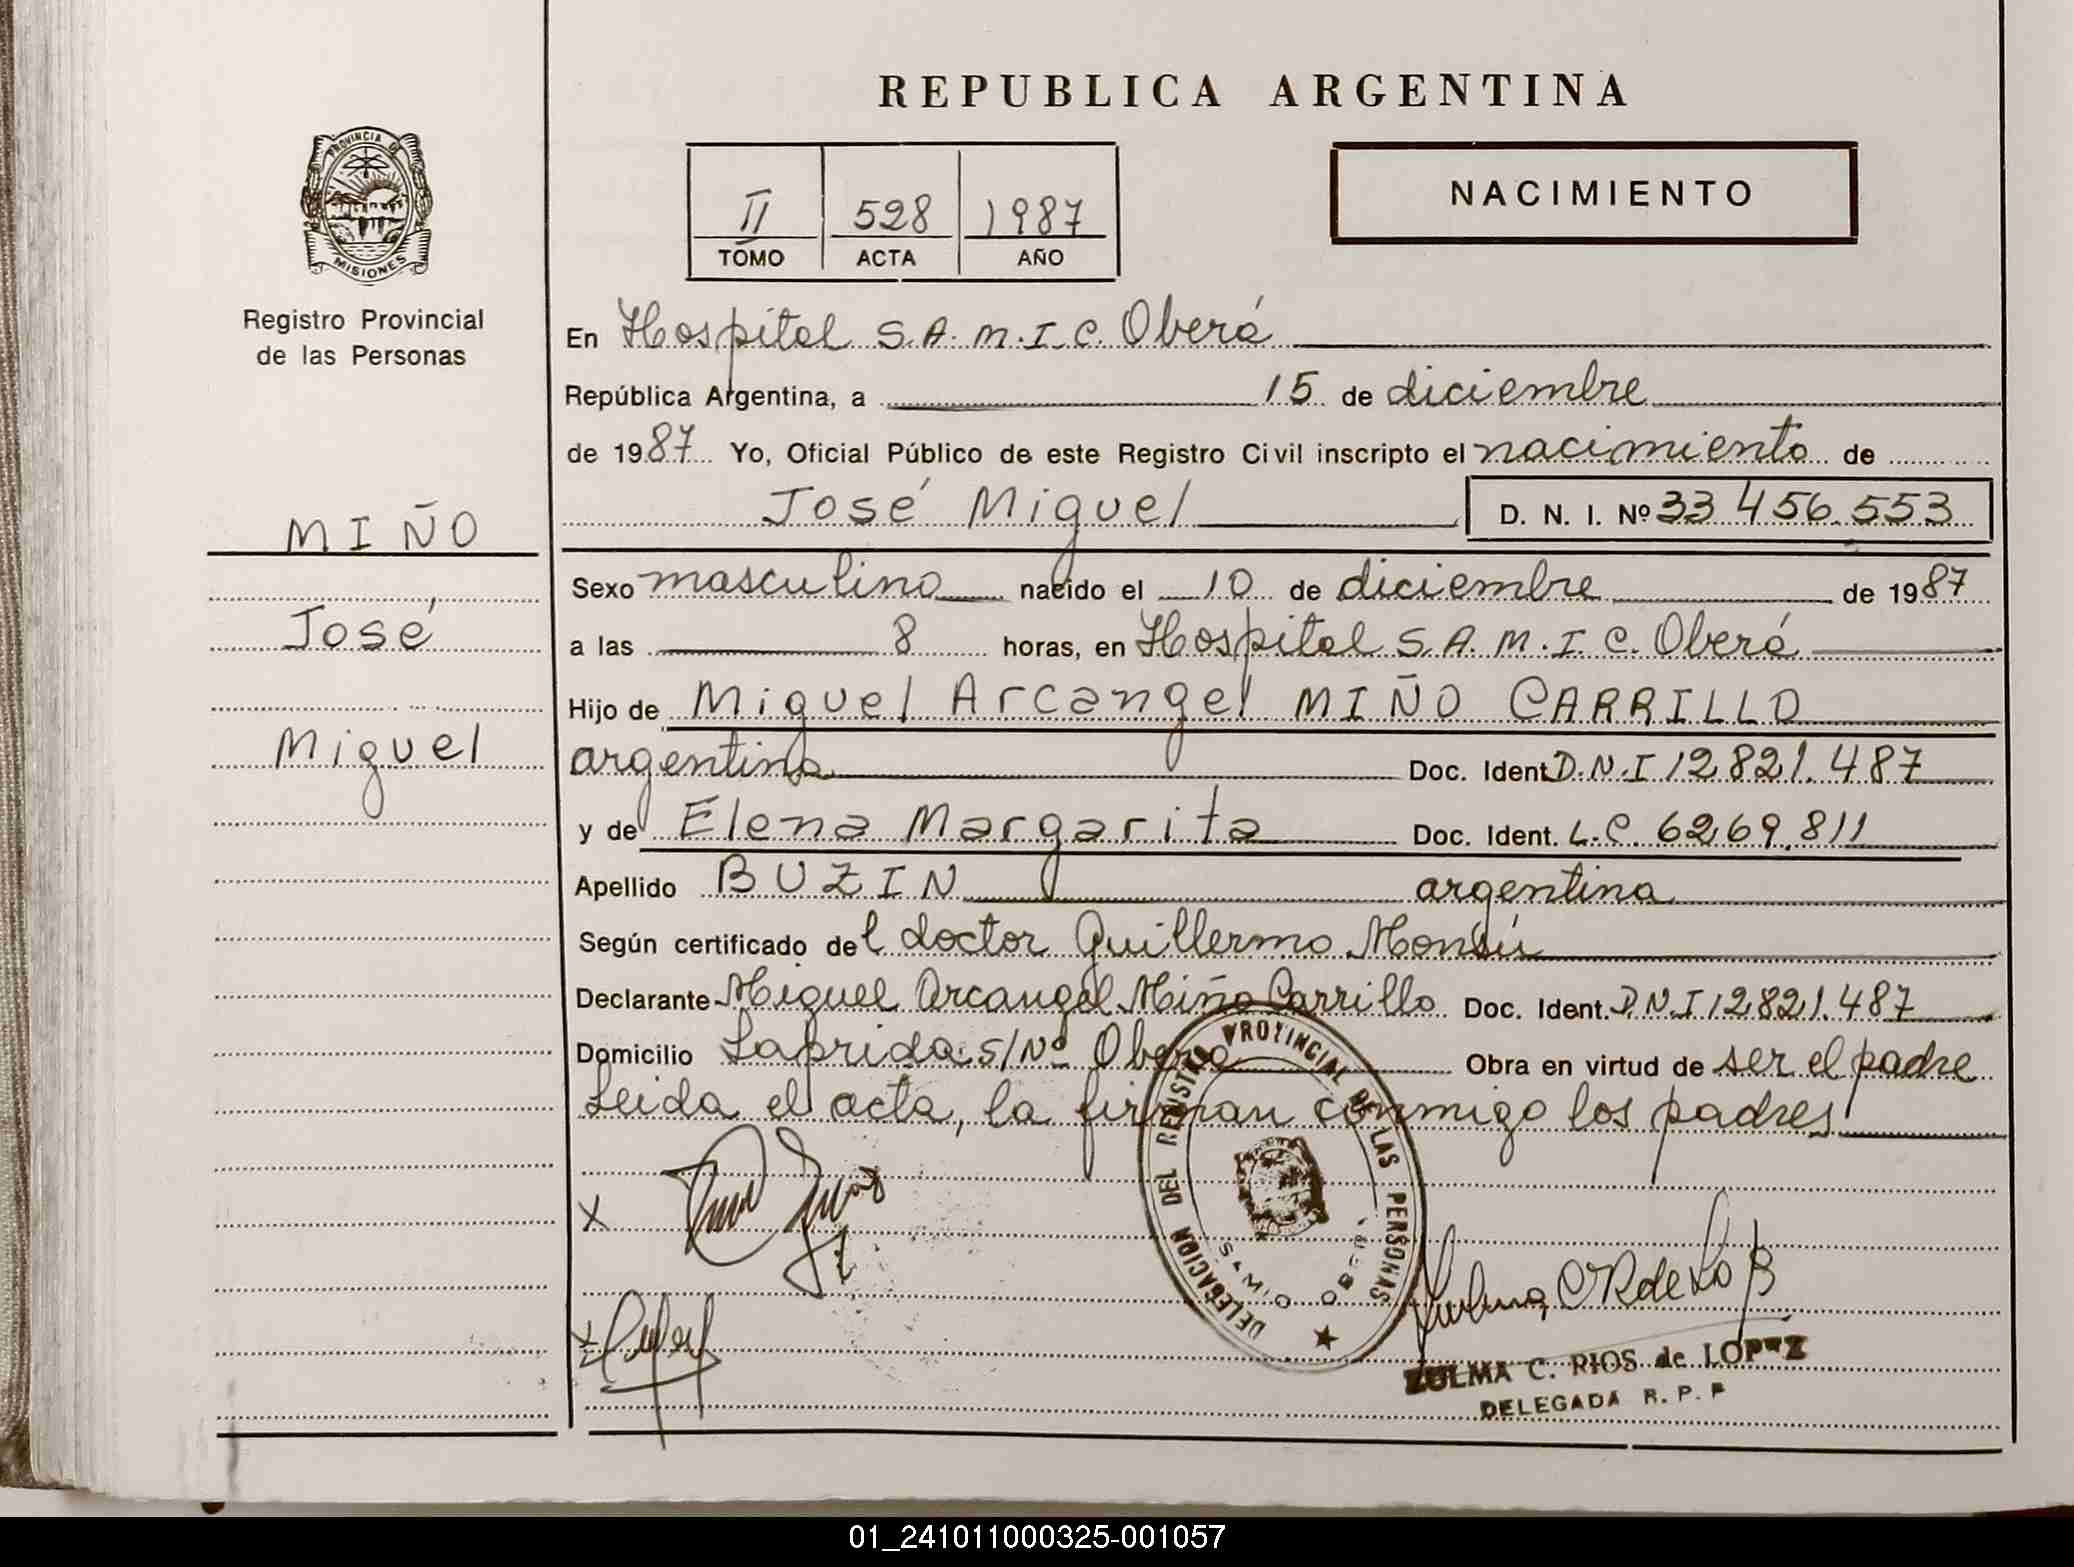 REPUBLICA ARGENTINA
PROVINCIA DE
MISIONES
Registro Provincial
de las Personas
II 528 1987
TOMO ACTA AÑO
NACIMIENTO
MIÑO
José
Miguel
En Hospital S.A.M.I.C. Oberá
República Argentina, a 15 de diciembre
de 1987 Yo, Oficial Público de este Registro Civil inscripto el nacimiento de
José Miguel D. N. I. Nº 33 456.553
Sexo masculino nacido el 10 de diciembre de 1987
a las 8 horas, en Hospital S.A.M.I.C. Oberá
Hijo de Miguel Arcangel MIÑO CARRILLO
argentino Doc. Ident. D.N.I 12.821.487
y de Elena Margarita Doc. Ident. L.C. 6269.811
Apellido BUZIN argentina
Según certificado del doctor Guillermo Monsú
Declarante Miguel Arcangel Miño Carrillo Doc. Ident. D.N.I 12.821.487
Domicilio Laprida s/Nº Oberá Obra en virtud de ser el padre
Leida el acta, la firman conmigo los padres
X
X
DELEGACION DEL REGISTRO PROVINCIAL DE LAS PERSONAS
SAMIC OBERA
ZULMA C. RIOS de LOPEZ
DELEGADA R. P. P
01_241011000325-001057